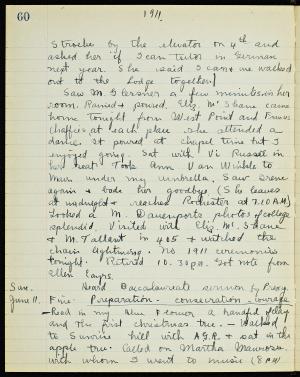 60
1911.
Strocke by the elevator on 4th and
asked her if I can tutor in German
next year. She said I can & we walked
out to the Lodge together!
Saw M. Gersner a few minutes in her
room. Rained & poured. Eliz. McShane came
home tonight from West Point and
at each place. She attended a
dance. It poured at chapel time but I
enjoyed going. Sat with Vi Russell in
her seat. Took Ann Van Winkle to
Main under my umbrella. Saw Irene
again & bade her goodbye (She leaves
at midnight & reaches Rochester at 7.10 A.M.)
Looked a M. Davenports photos of college
splendid. Visited with Eliz. McShane
& M. Tallant in 405 & watched the
chain lightning. No 1911 ceremonies
tonight. Retired 10.30 P.M. Got note from
Ellen
Sun.
June 11.
Heard Baccalaureate sermon by Prexy.
Fine. Preparation - conservation - courage
- Read in my a handful of clay
and the first christmas tree. - Walked
to Sunrise hill with A.G.R. & sat in the
apple tree. Called on Martha
with whom I went to music (8 P.M.